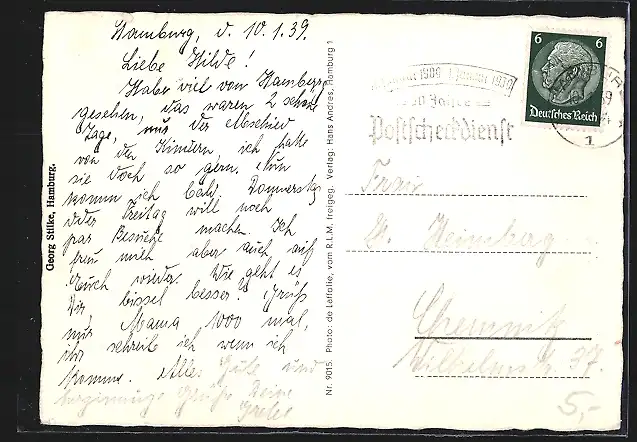 Hamburg, d. 10.1.39.
Liebe Hilde!
Habe viel von Hamburg
gesehen, das waren 2 schöne
Tage, nur der Abschied
von den Kindern, ich hatte
sie doch so gern. Nun
komm ich bald, Donnerstag
oder Freitag will noch
par Besuche machen. Ich
freu mich aber auch auf
Euch wieder. Wie geht es
Dir, bissel besser? Grüß
mir Mama 1000 mal,
ihr schreibe ich wenn ich
komme. Alles Gute und
Grüße Deine
Gretel
Georg Stilke, Hamburg.
Nr. 9015. Photo: de Leffolie, vom R.L.M. freigeg. Verlag: Hans Andres, Hamburg 1
1. Januar 1909 1. Januar 1939
30 Jahre
Postscheckdienst
6 6
Deutsches Reich
1
Frau
Heimberg
Chemnitz
Wilhelmstr. 37.
5,-